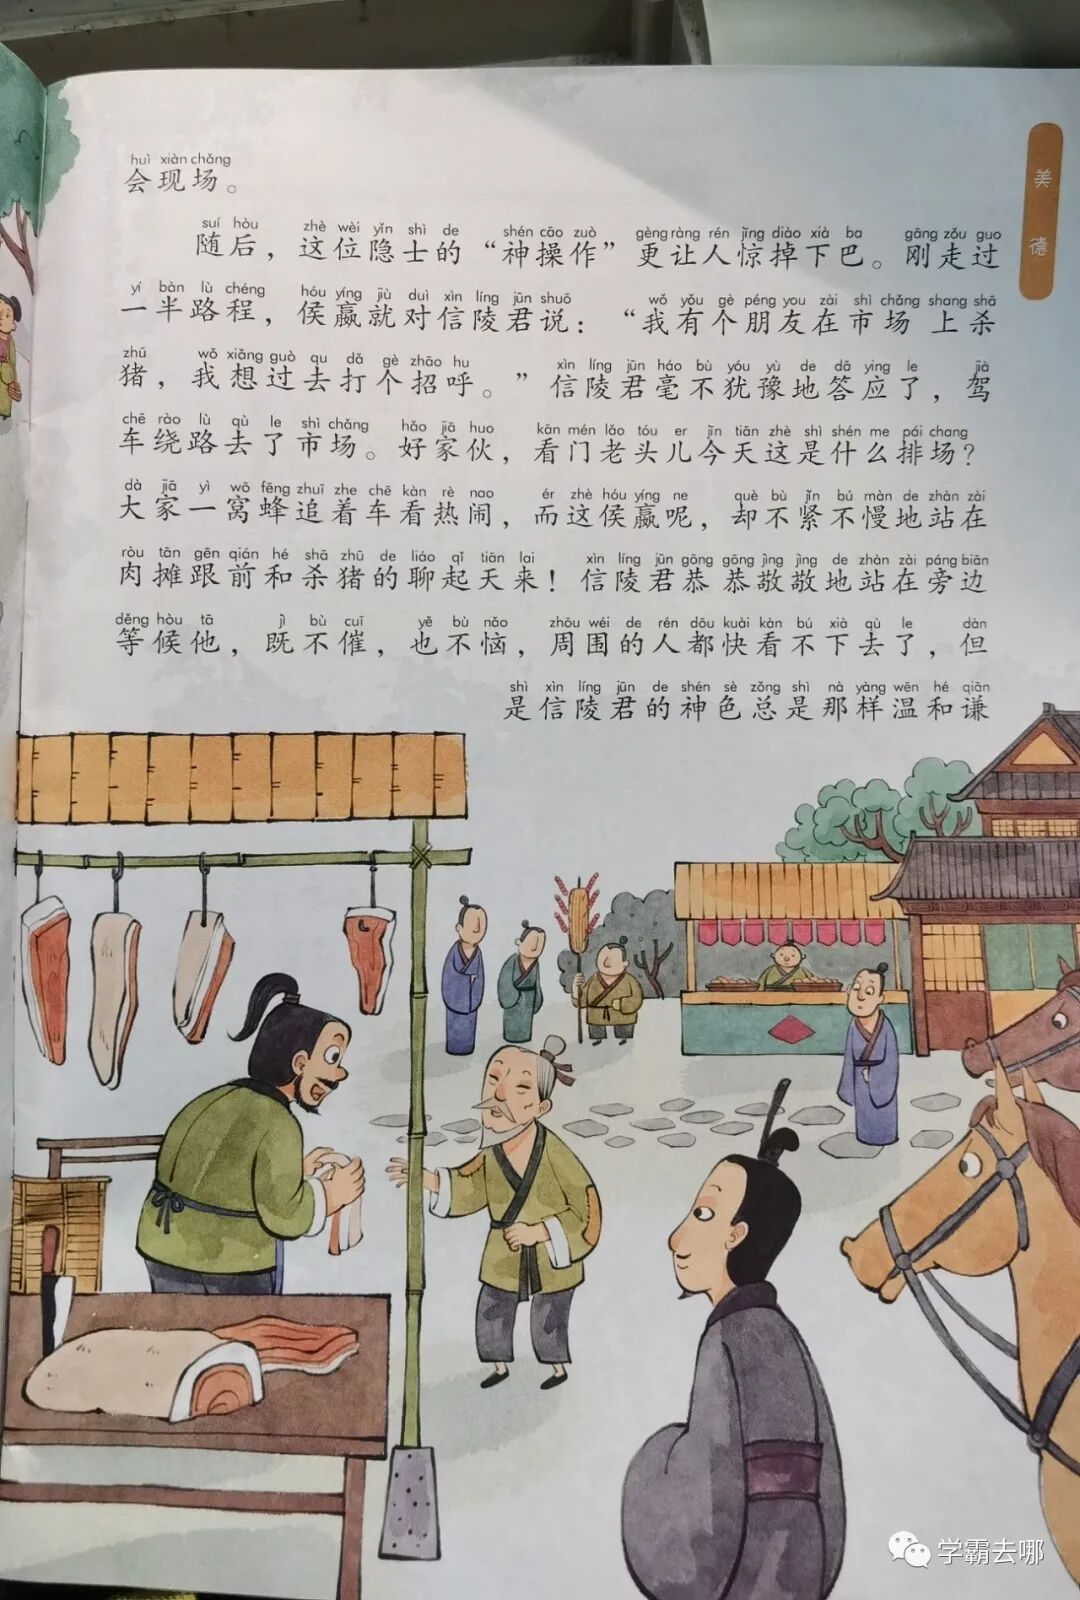 huì xiàn chǎng
会现场。
suí hòu zhè wèi yǐn shì de shén cāo zuò gèng ràng rén jīng diào xià ba gāng zǒu guo
随后，这位隐士的“神操作”更让人惊掉下巴。刚走过
yí bàn lù chéng hóu yíng jiù duì xìn líng jūn shuō wǒ yǒu gè péng you zài shì chǎng shang shā
一半路程，侯嬴就对信陵君说：“我有个朋友在市场上杀
zhū wǒ xiǎng guò qu dǎ gè zhāo hu xìn líng jūn háo bù yóu yù de dā ying le jià
猪，我想过去打个招呼。”信陵君毫不犹豫地答应了，驾
chē rào lù qù le shì chǎng hǎo jiā huo kān mén lǎo tóu er jīn tiān zhè shì shén me pái chang
车绕路去了市场。好家伙，看门老头儿今天这是什么排场？
dà jiā yì wō fēng zhuī zhe chē kàn rè nao ér zhè hóu yíng ne què bù jǐn bú màn de zhàn zài
大家一窝蜂追着车看热闹，而这侯嬴呢，却不紧不慢地站在
ròu tān gēn qián hé shā zhū de liáo qǐ tiān lai xìn líng jūn gōng gōng jìng jìng de zhàn zài páng biān
肉摊跟前和杀猪的聊起天来！信陵君恭恭敬敬地站在旁边
děng hòu tā jì bù cuī yě bù nǎo zhōu wéi de rén dōu kuài kàn bú xià qù le dàn
等候他，既不催，也不恼，周围的人都快看不下去了，但
shì xìn líng jūn de shén sè zǒng shì nà yàng wēn hé qiān
是信陵君的神色总是那样温和谦
美德
学霸去哪